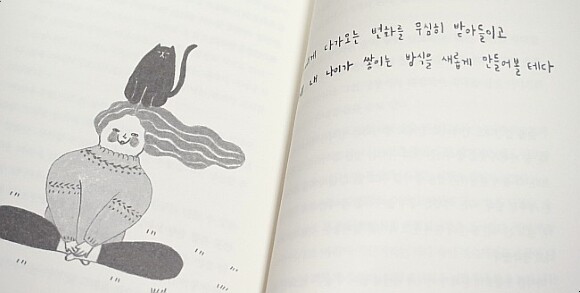 다가오는 변화를 무심히 받아들이고
내 나이가 쌓이는 방식을 새롭게 만들어볼 테다